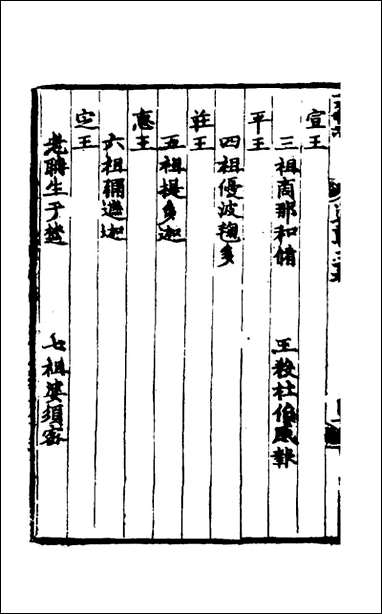 宣王
三祖商那和脩 王殺杜伯厭報
平王
四祖優波毱多
莊王
五祖提多迦
惠王
六祖彌遮迦
定王
老聃生于楚 七祖婆須密